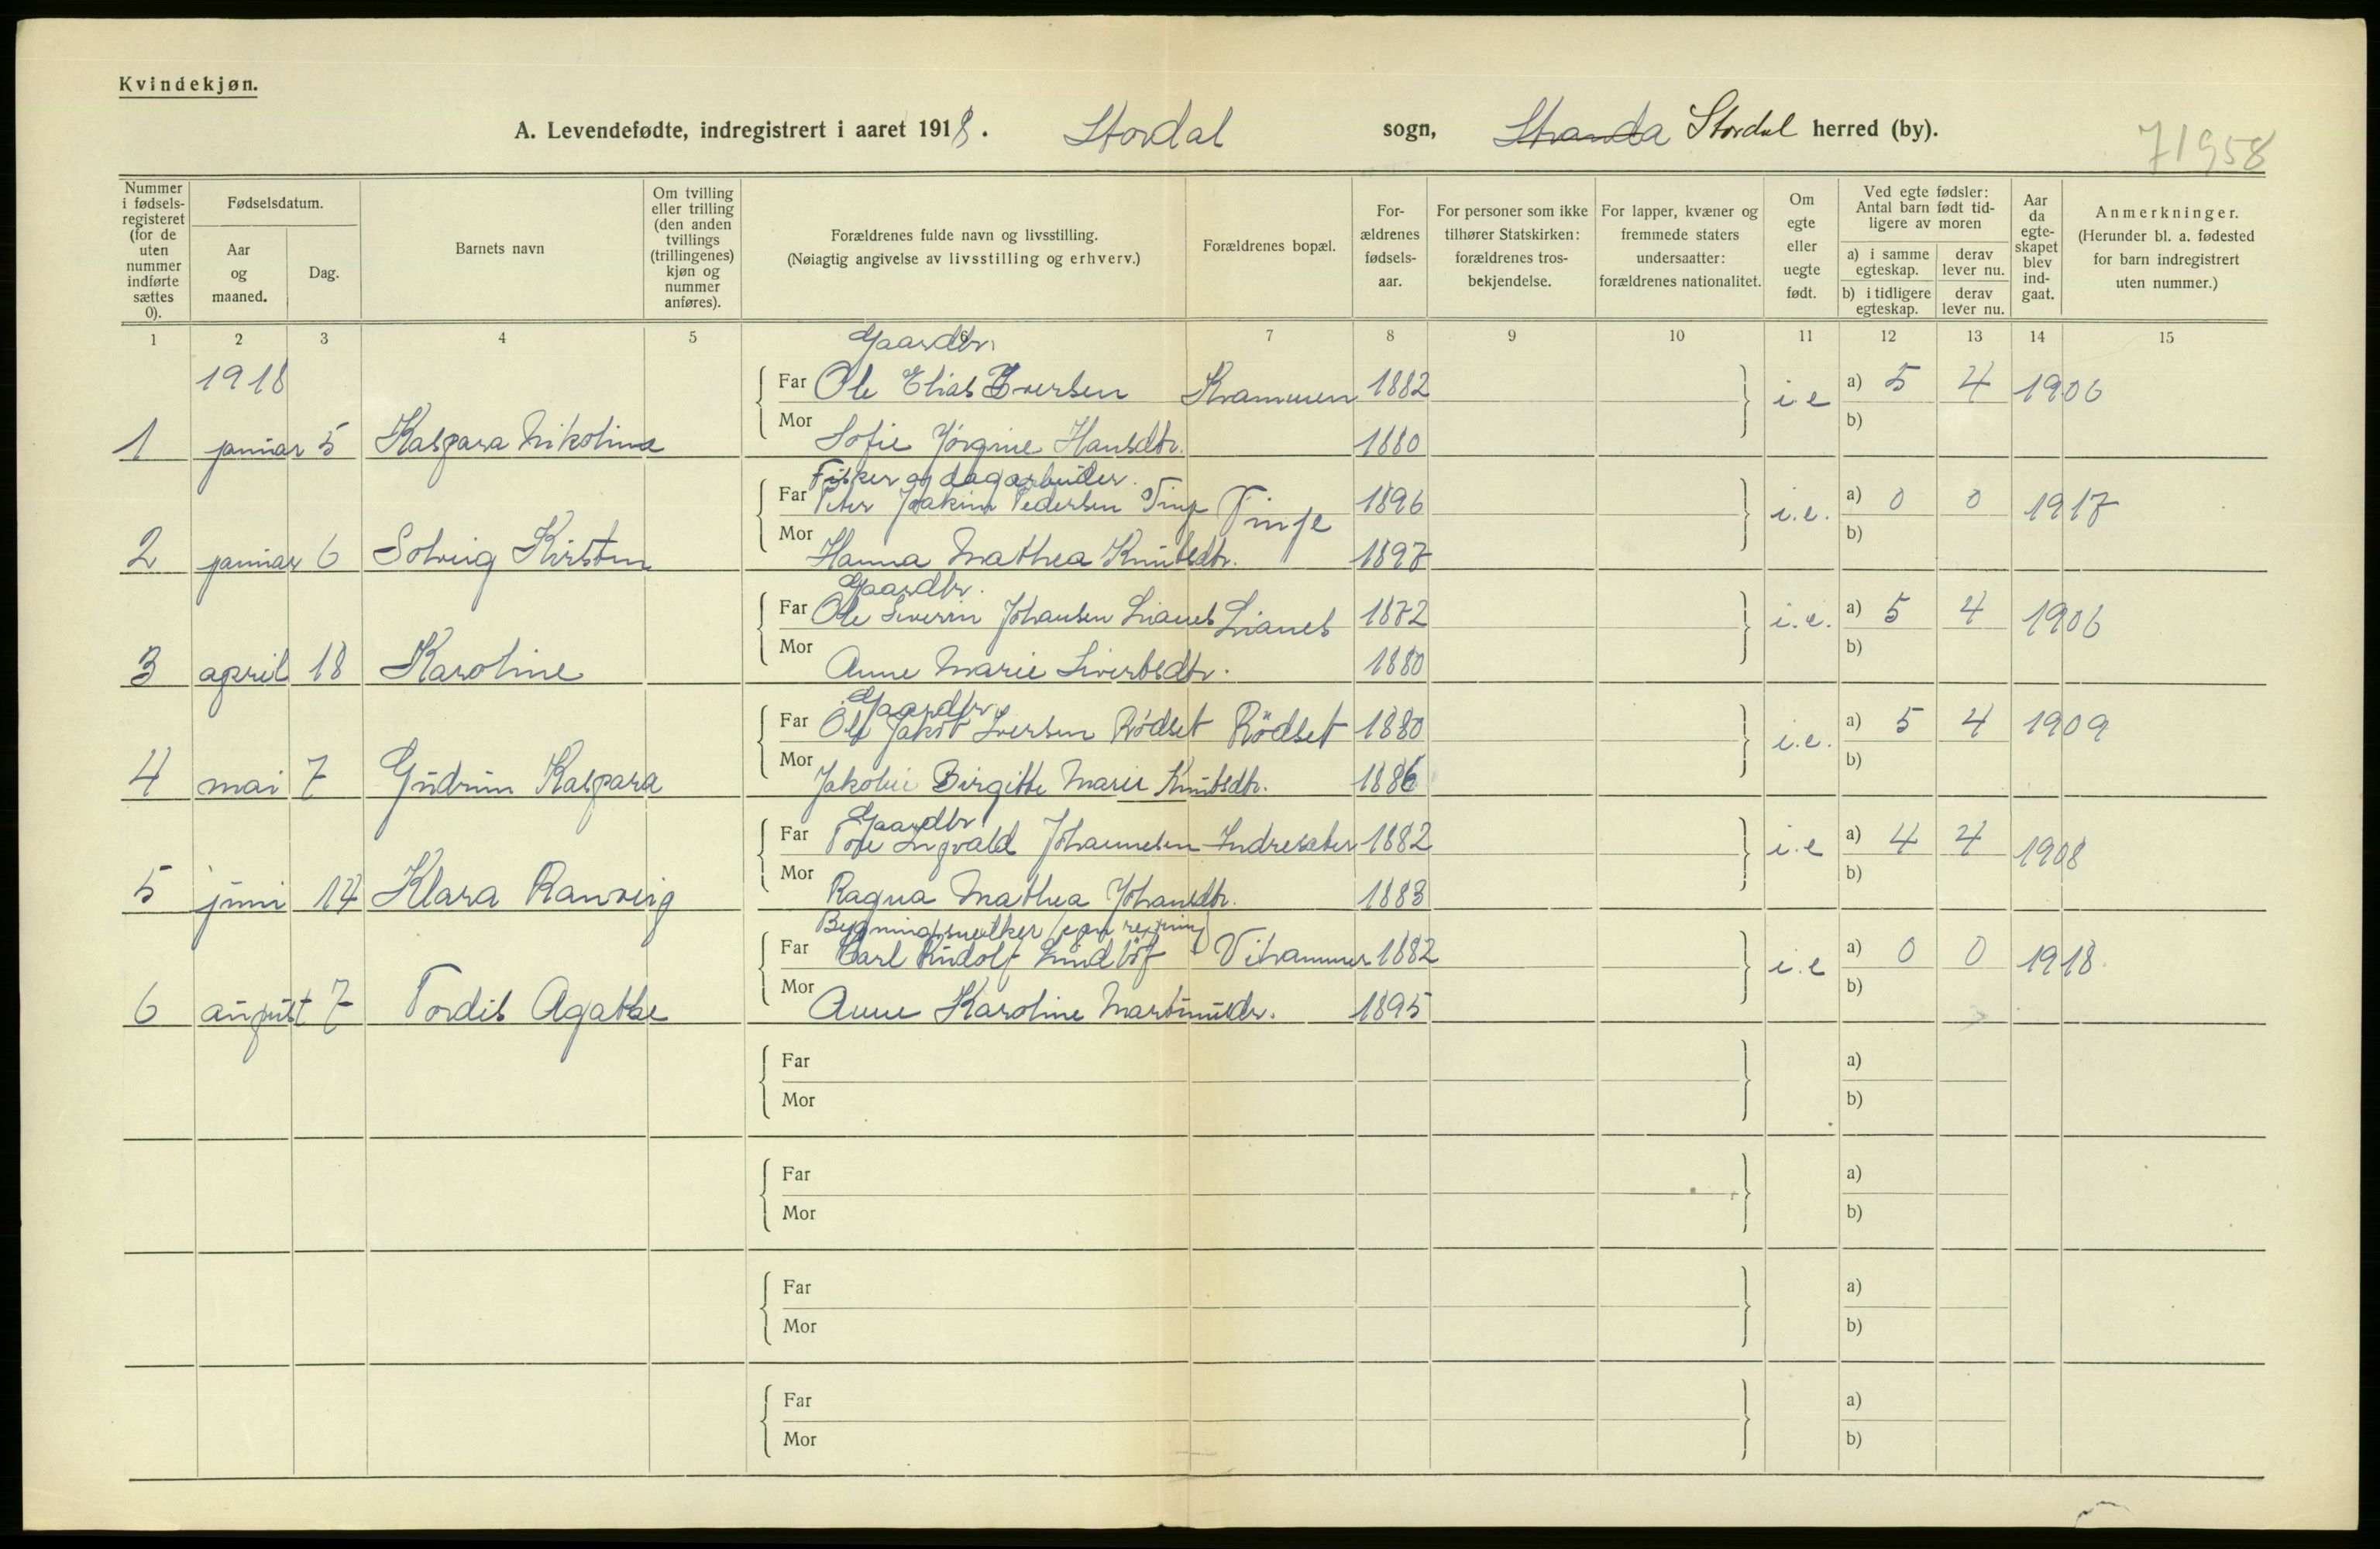 Kvindekjøn.
A. Levendefødte, indregistrert i aaret 1918. Stordal sogn, Stranda Stordal herred (by).
71958
Nummer i fødsels-registeret (for de uten nummer indførte sættes 0).
Fødselsdatum.
Aar og maaned.
Dag.
Barnets navn
Om tvilling eller trilling (den anden tvillings (trillingenes) kjøn og nummer anføres).
Forældrenes fulde navn og livsstilling.
(Nøiagtig angivelse av livsstilling og erhverv.)
Forældrenes bopæl.
For-ældrenes fødsels-aar.
For personer som ikke tilhører Statskirken: forældrenes tros-bekjendelse.
For lapper, kvæner og fremmede staters undersaatter: forældrenes nationalitet.
Om egte eller uegte født.
Ved egte fødsler: Antal barn født tid-ligere av moren
a) i samme egteskap.
derav lever nu.
b) i tidligere egteskap.
derav lever nu.
Aar da egte-skapet blev ind-gaat.
Anmerkninger.
(Herunder bl. a. fødested for barn indregistrert uten nummer.)
1 2 3 4 5 6 7 8 9 10 11 12 13 14 15
1918
Gaardbr.
Far Ole Elias Iversen Krammen 1882 i.e a) 5 4 1906
1 januar 5 Kaspara Nikoline Mor Sofie Jørgine Hansdtr. 1880 b)
Fisker og dagarbeider.
Far Peter Joakim Pedersen Tinge Tinge 1896 i.e. a) 0 0 1917
2 januar 6 Solveig Kirsten Mor Hanna Mathea Knutsdtr. 1897 b)
Gaardbr.
Far Ole Severin Johansen Lianes Lianes 1872 i.e. a) 5 4 1906
3 april 18 Karoline Mor Anne Marie Sivertsdtr. 1880 b)
Gaardbr.
Far Ole Jakob Iversen Rödset Rödset 1880 i.e. a) 5 4 1909
4 mai 7 Gudrun Kaspara Mor Jakobie Birgitte Marie Knutsdtr. 1886 b)
Gaardbr.
Far Tore Ingvald Johannesen Indresæter 1882 i.e a) 4 4 1908
5 juni 14 Klara Ranveig Mor Ragna Mathea Johansdtr. 1883 b)
Bygningssnedker (egen regning)
Far Karl Rudolf Lindlöf Vihammer 1882 i.e a) 0 0 1918
6 august 7 Tordis Agathe Mor Anne Karoline Martinusdr. 1895 b)
Far a)
Mor b)
Far a)
Mor b)
Far a)
Mor b)
Far a)
Mor b)